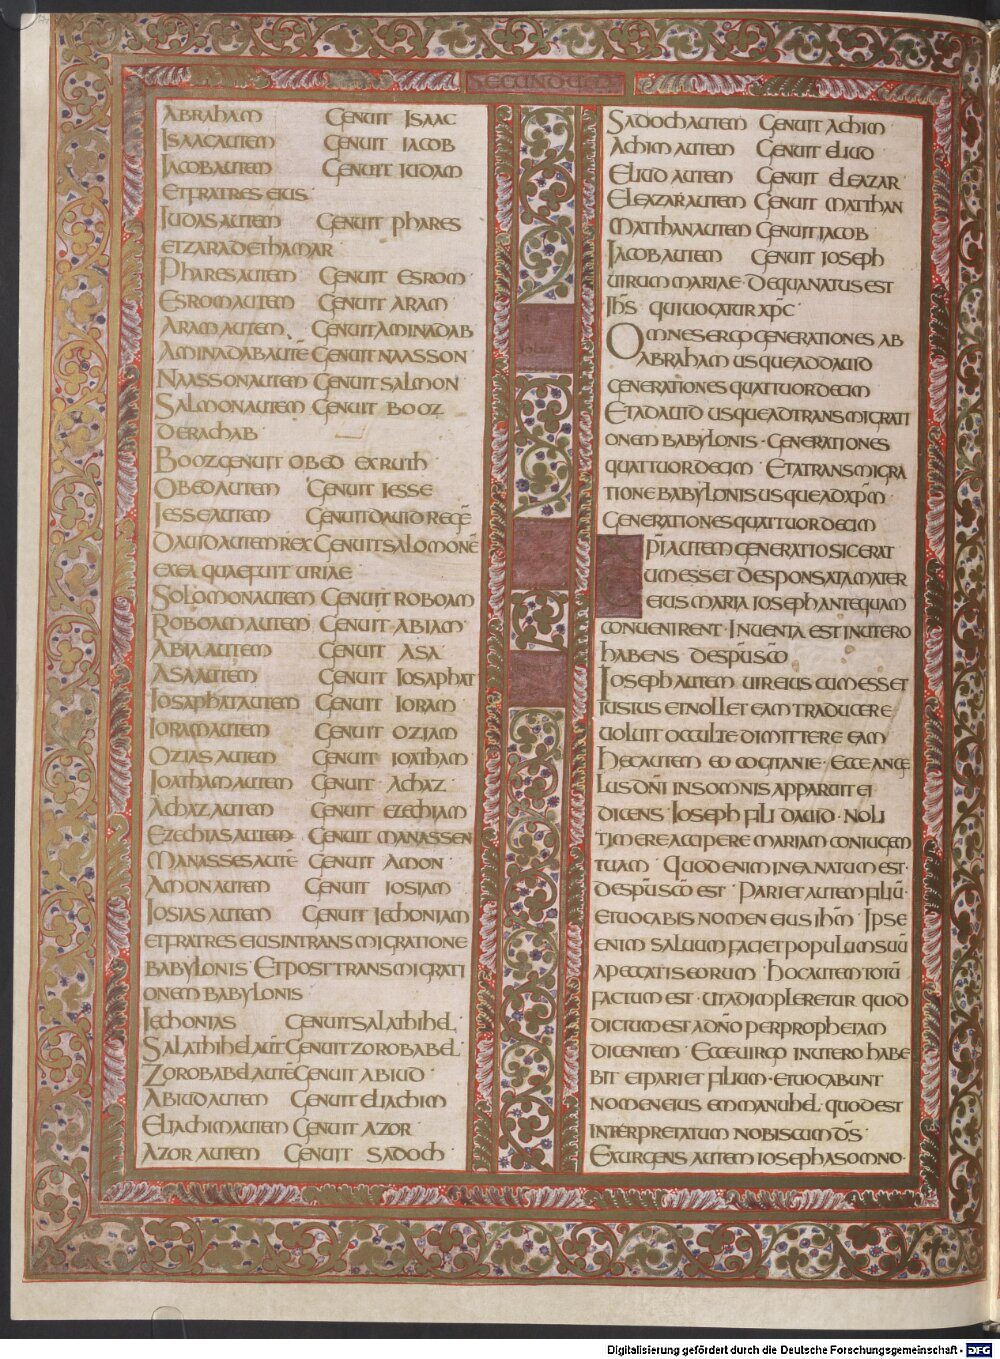 SECUNDUM
ABRAHAM GENUIT ISAAC
ISAAC AUTEM GENUIT IACOB
IACOB AUTEM GENUIT IUDAM
ET FRATRES EIUS
IUDAS AUTEM GENUIT PHARES
ET ZARA DE THAMAR
PHARES AUTEM GENUIT ESROM
ESROM AUTEM GENUIT ARAM
ARAM AUTEM GENUIT AMINADAB
AMINADAB AUTĒ GENUIT NAASSON
NAASSON AUTEM GENUIT SALMON
SALMON AUTEM GENUIT BOOZ
DE RACHAB
BOOZ GENUIT OBED EX RUTH
OBED AUTEM GENUIT IESSE
IESSE AUTEM GENUIT DAUID REGĒ
DAUID AUTEM REX GENUIT SALOMONĒ
EX EA QUAE FUIT URIAE
SOLOMON AUTEM GENUIT ROBOAM
ROBOAM AUTEM GENUIT ABIAM
ABIA AUTEM GENUIT ASA
ASA AUTEM GENUIT IOSAPHAT
IOSAPHAT AUTEM GENUIT IORAM
IORAM AUTEM GENUIT OZIAM
OZIAS AUTEM GENUIT IOATHAM
IOATHAM AUTEM GENUIT ACHAZ
ACHAZ AUTEM GENUIT EZECHIAM
EZECHIAS AUTEM GENUIT MANASSEN
MANASSES AUTĒ GENUIT AMON
AMON AUTEM GENUIT IOSIAM
IOSIAS AUTEM GENUIT IECHONIAM
ET FRATRES EIUS IN TRANSMIGRATIONE
BABYLONIS · ET POST TRANSMIGRATI
ONEM BABYLONIS
IECHONIAS GENUIT SALATHIHEL
SALATHIHEL AUT̄ GENUIT ZOROBABEL
ZOROBABEL AUTĒ GENUIT ABIUD
ABIUD AUTEM GENUIT ELIACHIM
ELIACHIM AUTEM GENUIT AZOR
AZOR AUTEM GENUIT SADOCH
SADOCH AUTEM GENUIT ACHIM
ACHIM AUTEM GENUIT ELIUD
ELIUD AUTEM GENUIT ELEAZAR
ELEAZAR AUTEM GENUIT MATTHAN
MATTHAN AUTEM GENUIT IACOB
IACOB AUTEM GENUIT IOSEPH
UIRUM MARIAE · DE QUA NATUS EST
IHS̄ QUI UOCATUR XP̄C
OMNES ERGO GENERATIONES AB
ABRAHAM USQUE AD DAUID
GENERATIONES QUATTUORDECIM
ET A DAUID USQUE AD TRANSMIGRATI
ONEM BABYLONIS · GENERATIONES
QUATTUORDECIM · ET A TRANSMIGRA
TIONE BABYLONIS USQUE AD XP̄M
GENERATIONES QUATTUORDECIM
XP̄I AUTEM GENERATIO SIC ERAT
CUM ESSET DESPONSATA MATER
EIUS MARIA IOSEPH ANTEQUAM
CONUENIRENT · INUENTA EST IN UTERO
HABENS DE SP̄U SCŌ
IOSEPH AUTEM UIR EIUS CUM ESSET
IUSTUS ET NOLLET EAM TRADUCERE
UOLUIT OCCULTE DIMITTERE EAM
HEC AUTEM EO COGITANTE · ECCE ANGE
LUS DN̄I IN SOMNIS APPARUIT EI
DICENS · IOSEPH FILI DAUID · NOLI
TIMERE ACCIPERE MARIAM CONIUGEM
TUAM · QUOD ENIM IN EA NATUM EST ·
DE SP̄U SCŌ EST · PARIET AUTEM FILIŪ ·
ET UOCABIS NOMEN EIUS IHM̄ · IPSE
ENIM SALUUM FACIET POPULUM SUŪ
A PECCATIS EORUM · HOC AUTEM TOTŪ
FACTUM EST · UT ADIMPLERETUR QUOD
DICTUM EST A DN̄O PER PROPHETAM
DICENTEM · ECCE UIRGO IN UTERO HABE
BIT ET PARIET FILIUM · ET UOCABUNT
NOMEN EIUS EMMANUHEL · QUOD EST
INTERPRETATUM NOBISCUM DS̄
EXURGENS AUTEM IOSEPH A SOMNO ·
Digitalisierung gefördert durch die Deutsche Forschungsgemeinschaft - DFG